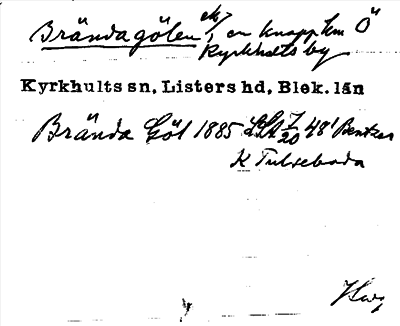 Brändagölen, en knapp km Ö
Kyrkhults by
Kyrkhults sn, Listers hd, Blek. län
Brända Göl 1885 7/20 48' Bentzen
K Tulseboda